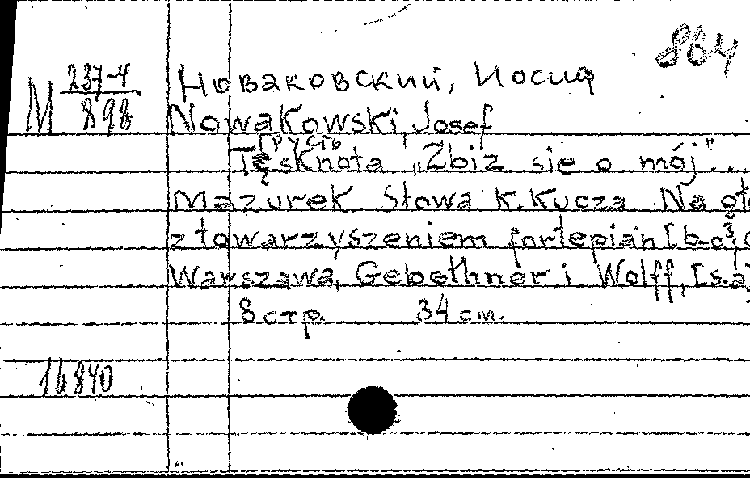 864
М 237-4
898
Новаковский, Иосиф
Nowakowski, Josef
Грусть
Tęsknota „Zbiz się o mój"...
Mazurek Słowa K. Kucza Na gło
z towarzyszeniem fortepian [b-
Warszawa, Gebethner i Wolff, [s.a]
8 стр. 34 см.
16840